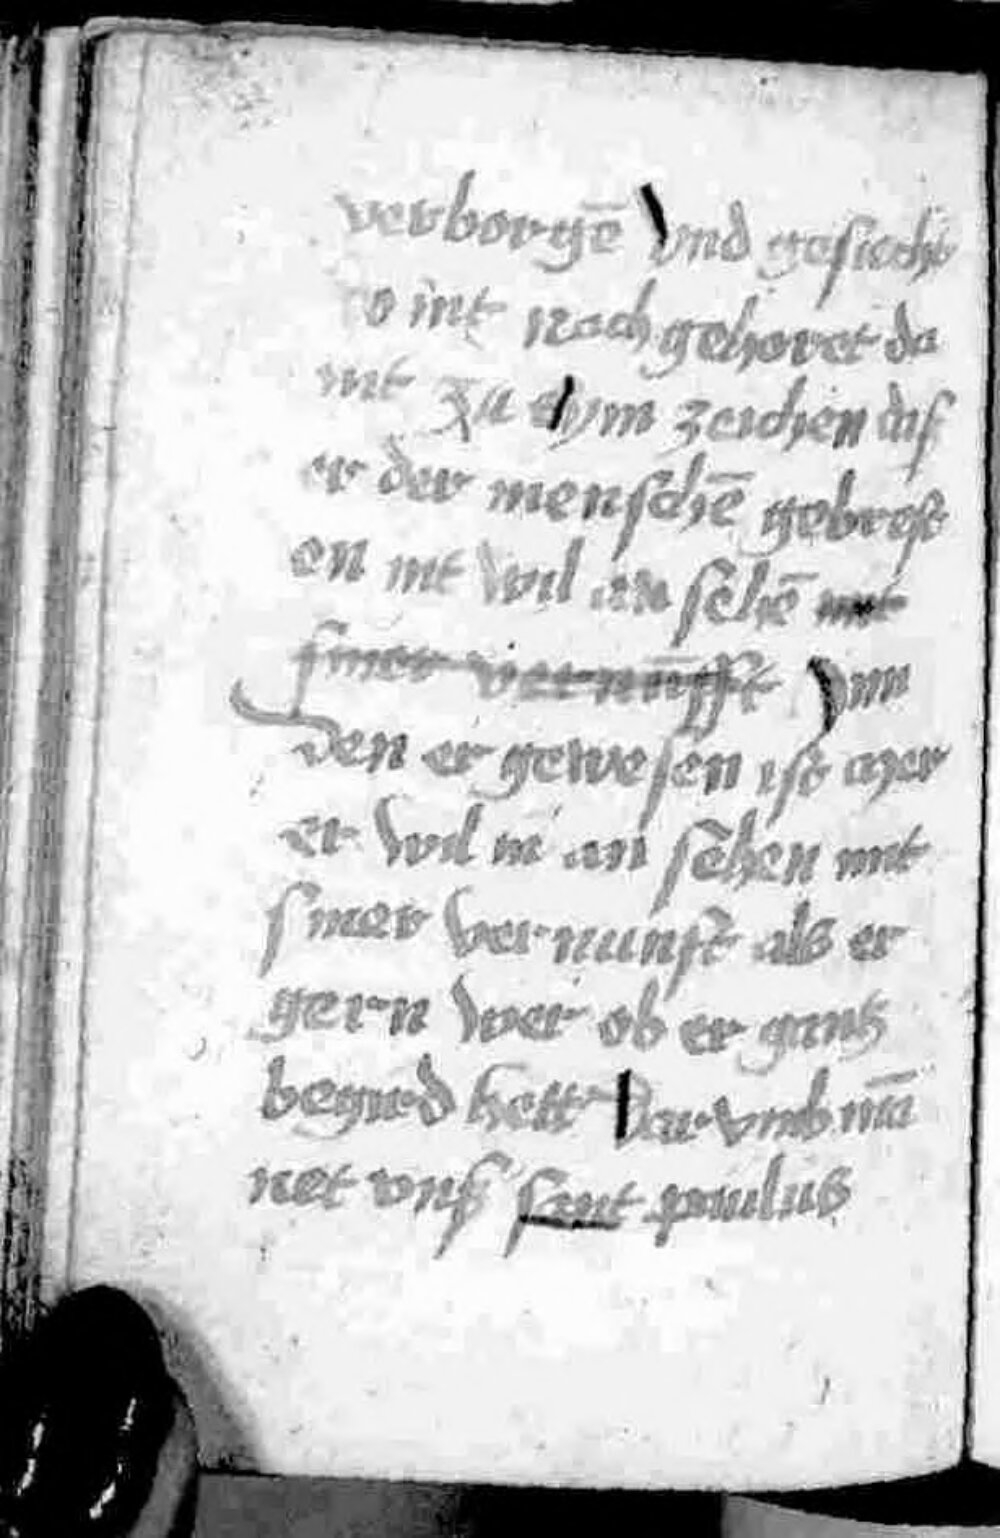 verborgē vnd gesicht
nit noch gehoret da
mit zu eym zeichen dis
er der menschē gebrest
en nit wil an sehē mit
siner vernūfft Inn
den er gewesen ist aber
er wil in an sehen mit
siner vernunfft als er
gern wer ob er gantz
begird hett Dar vmb mā
net vnß sant paulus